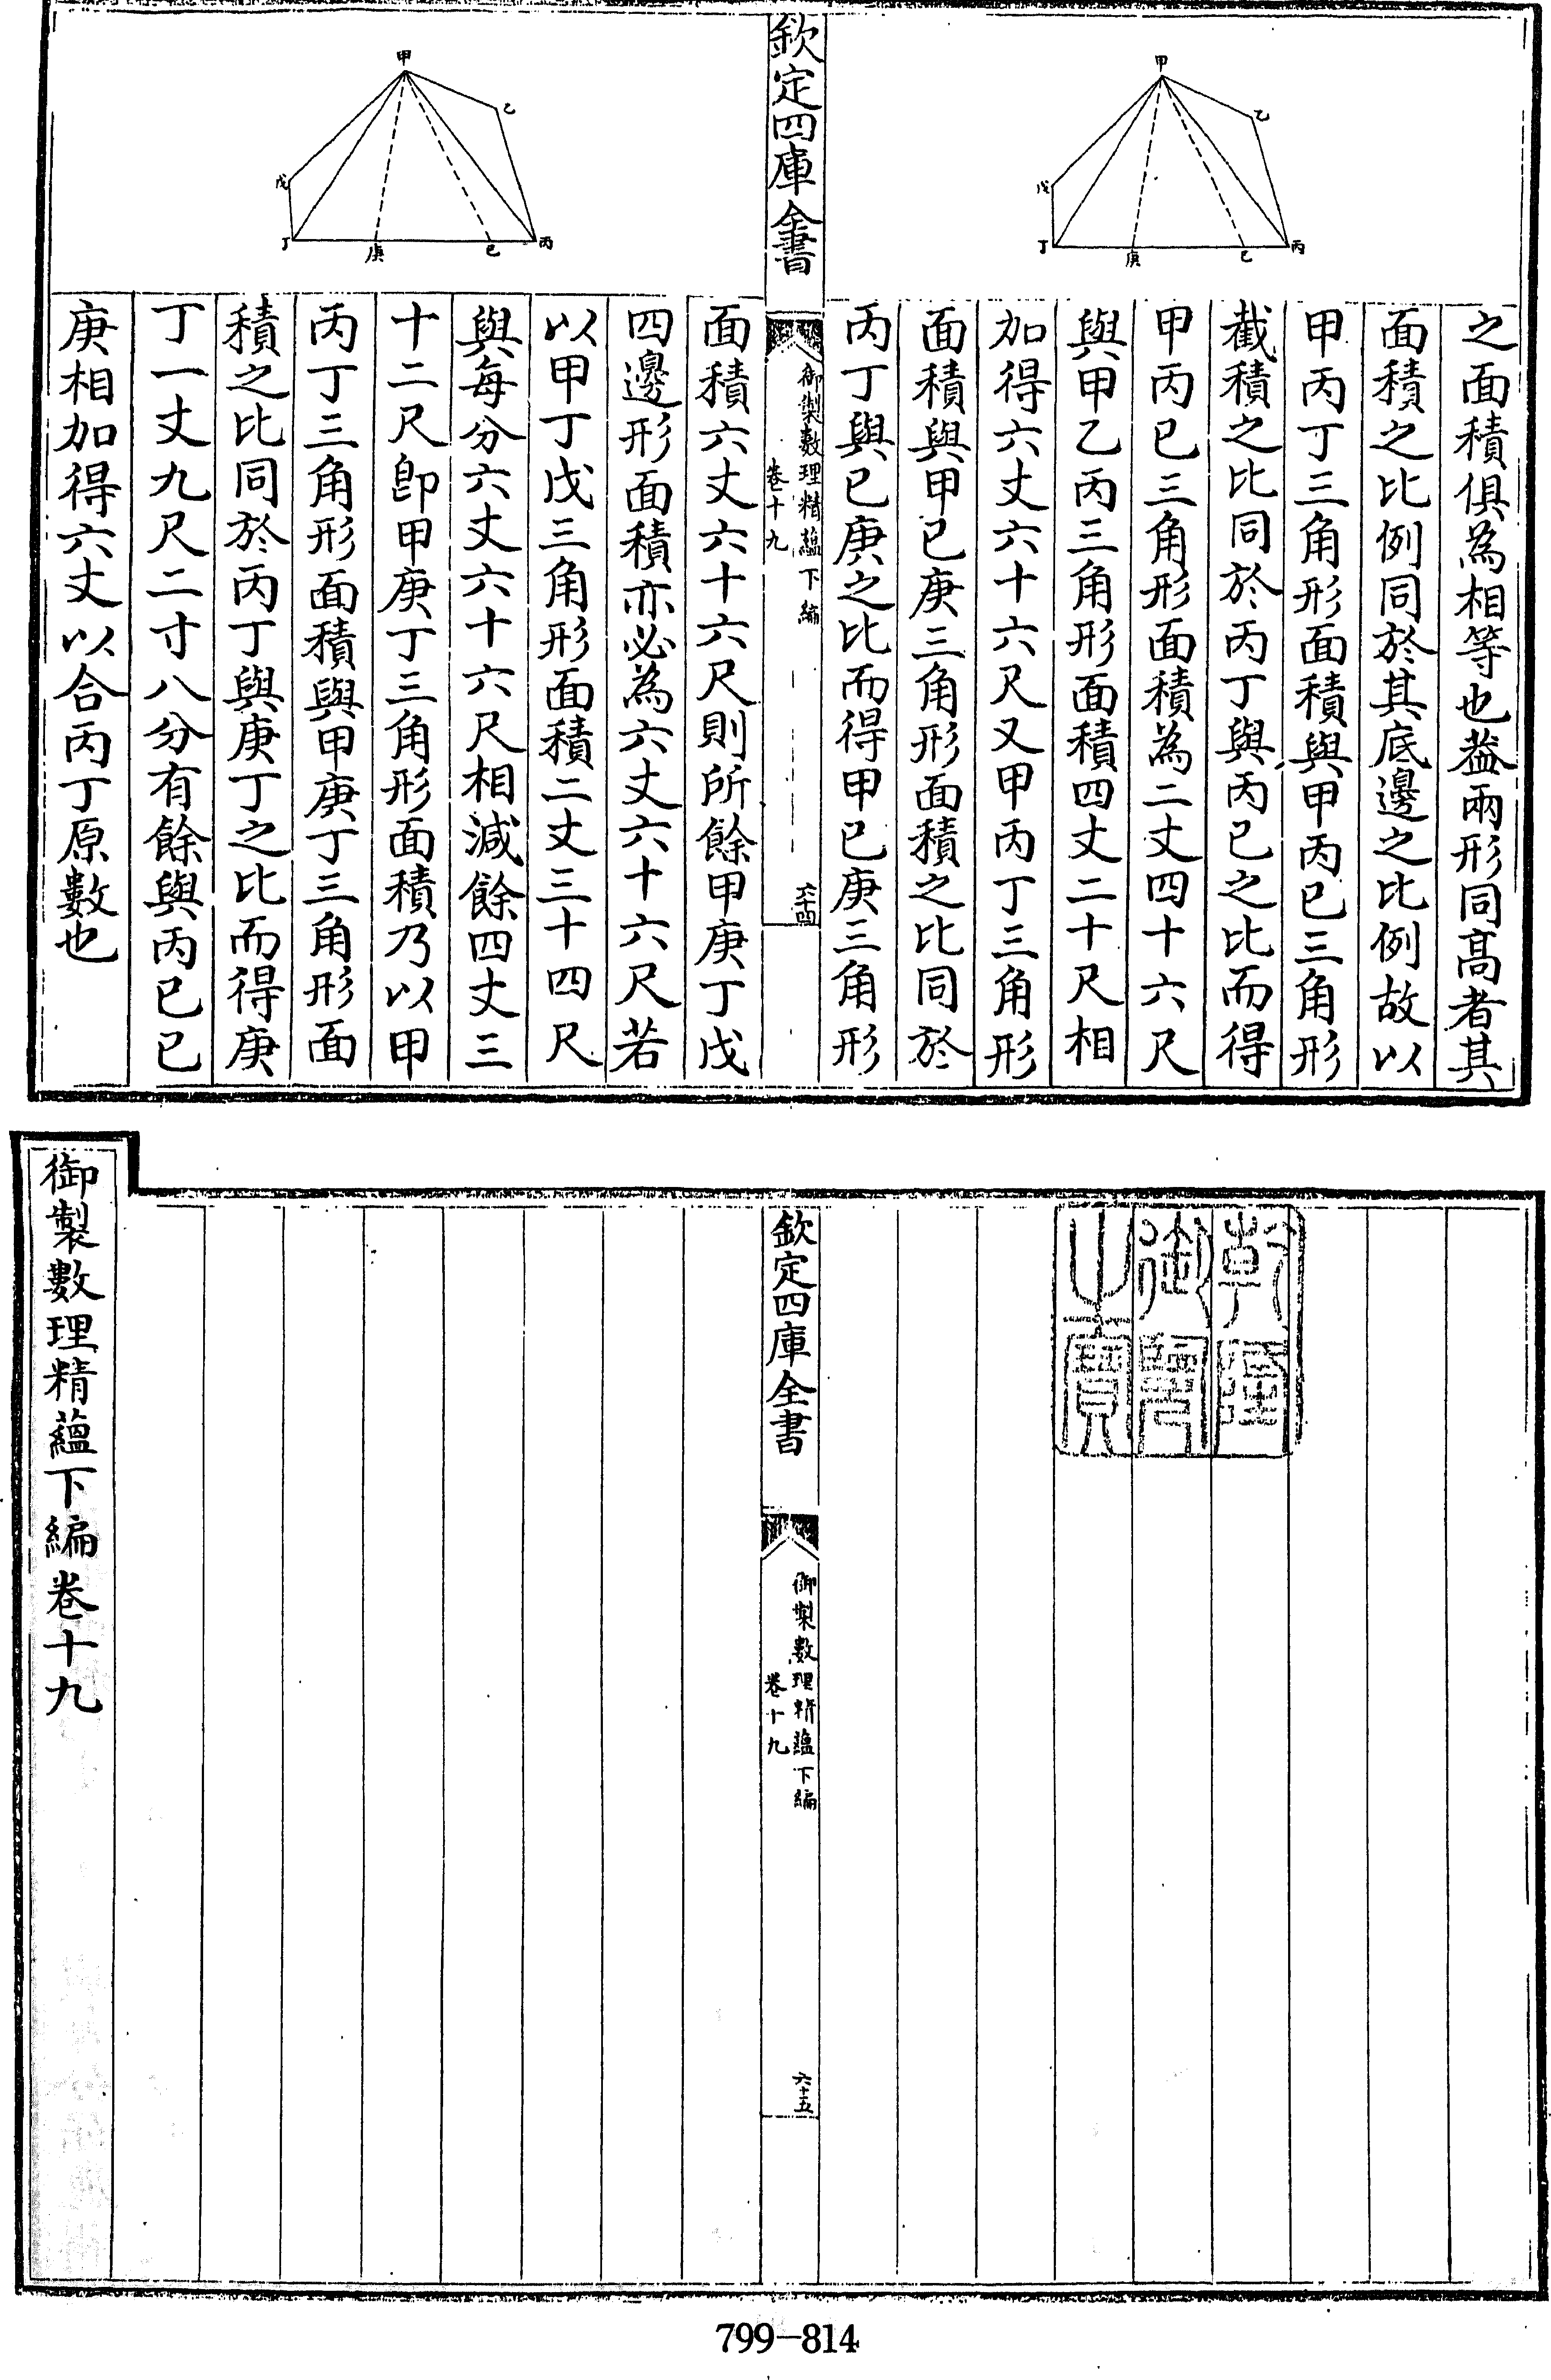 甲
乙
丙
己
庚
丁
戊
之面積俱為相等也葢兩形同髙者其
面積之比例同於其底邊之比例故以
甲丙丁三角形面積與甲丙己三角形
截積之比同於丙丁與丙己之比而得
甲丙己三角形面積為二丈四十六尺
與甲乙丙三角形面積四丈二十尺相
加得六丈六十六尺又甲丙丁三角形
面積與甲己庚三角形面積之比同於
丙丁與己庚之比而得甲己庚三角形
欽定四庫全書
御製數理精蘊下編
卷十九
六十四
甲
乙
丙
己
庚
丁
戊
面積六丈六十六尺則所餘甲庚丁戊
四邊形面積亦必為六丈六十六尺若
以甲丁戊三角形面積二丈三十四尺
與每分六丈六十六尺相減餘四丈三
十二尺卽甲庚丁三角形面積乃以甲
丙丁三角形面積與甲庚丁三角形面
積之比同於丙丁與庚丁之比而得庚
丁一丈九尺二寸八分有餘與丙己己
庚相加得六丈以合丙丁原數也
乾隆
御覽
之寶
欽定四庫全書
御製數理精蘊下編
卷十九
六十五
御製數理精蘊下編卷十九
799-814